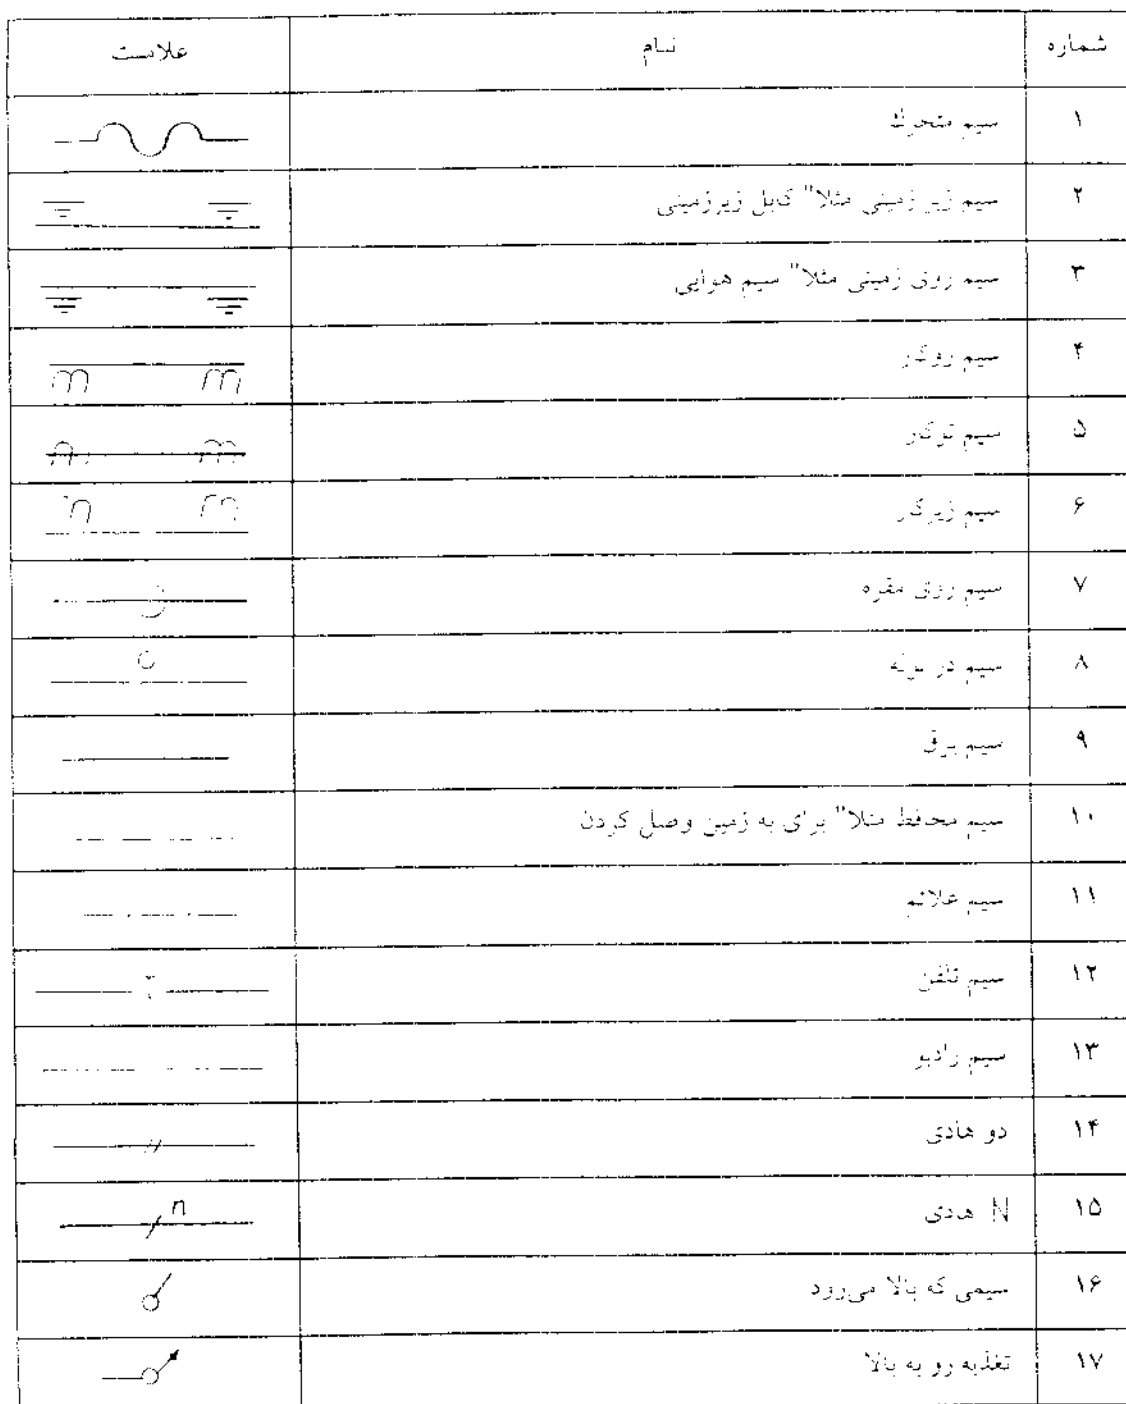 شماره نام علامت
۱ سیم متحرک
۲ سیم زیر زمینی مثلا" کابل زیرزمینی
۳ سیم روی زمینی مثلا" سیم هوایی
۴ سیم روکار
۵ سیم توکار
۶ سیم زیرکار
۷ سیم روی مقره
۸ سیم در لوله
۹ سیم برق
۱۰ سیم محافظ مثلا" برای به زمین وصل کردن
۱۱ سیم علائم
۱۲ سیم تلفن T
۱۳ سیم رادیو
۱۴ دو هادی
۱۵ N هادی n
۱۶ سیمی که بالا می‌رود
۱۷ تغذیه رو به بالا